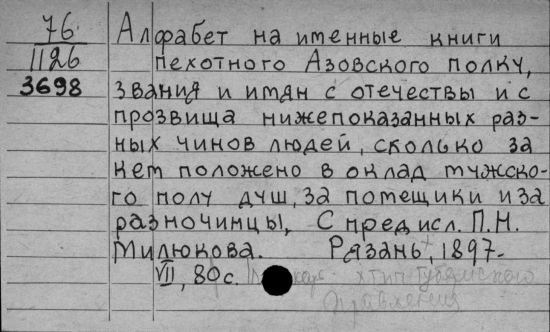 76
1126
3698
Алфабет на именные книги
пехотного Азовского полку,
звания и имян с отечествы и с
прозвища нижепоказанных раз-
ных чинов людей, сколько за
кем положено в оклад мужско-
го полу душ, за помещики и за
разночинцы, С предисл. П.Н.
Милюкова. Рязань, 1897.
VII, 80 с. тип. Губернского
правления